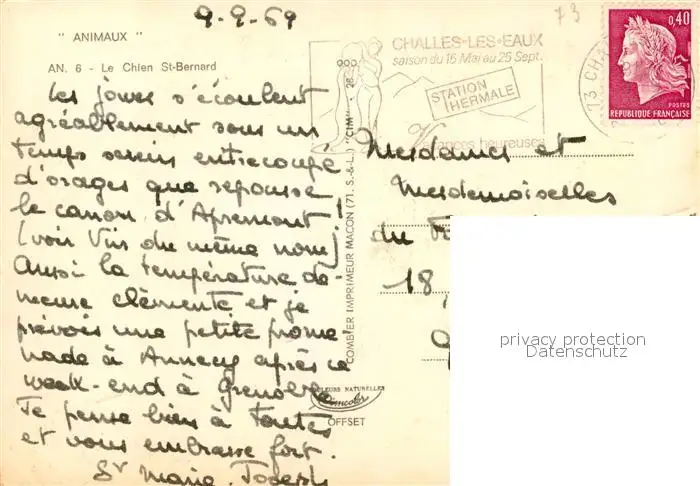 9-9-69
" ANIMAUX "
AN. 6 - Le Chien St-Bernard
73
CHALLES-LES-EAUX
saison du 16 Mai au 25 Sept.
STATION
HERMALE
Vacances heureuses
0,40
POSTES
REPUBLIQUE FRANÇAISE
73 CHA
Les jours s'écoulent
agréablement sous un
temps serein entrecoupé
d'orages que repousse
le canon d'Apremont!
(voir Vins du même nom)
Aussi la température de-
meure clémente et je
prévois une petite prome
nade à Annecy après ce
week-end à Grenoble
Je pense bien à toutes
et vous embrasse fort.
Sr Marie Joseph
COMBIER IMPRIMEUR MACON (71. S.-&-L.) "CIM"
COULEURS NATURELLES
Cimcolor
OFFSET
Mesdames et
Mesdemoiselles
du
18
privacy protection
Datenschutz